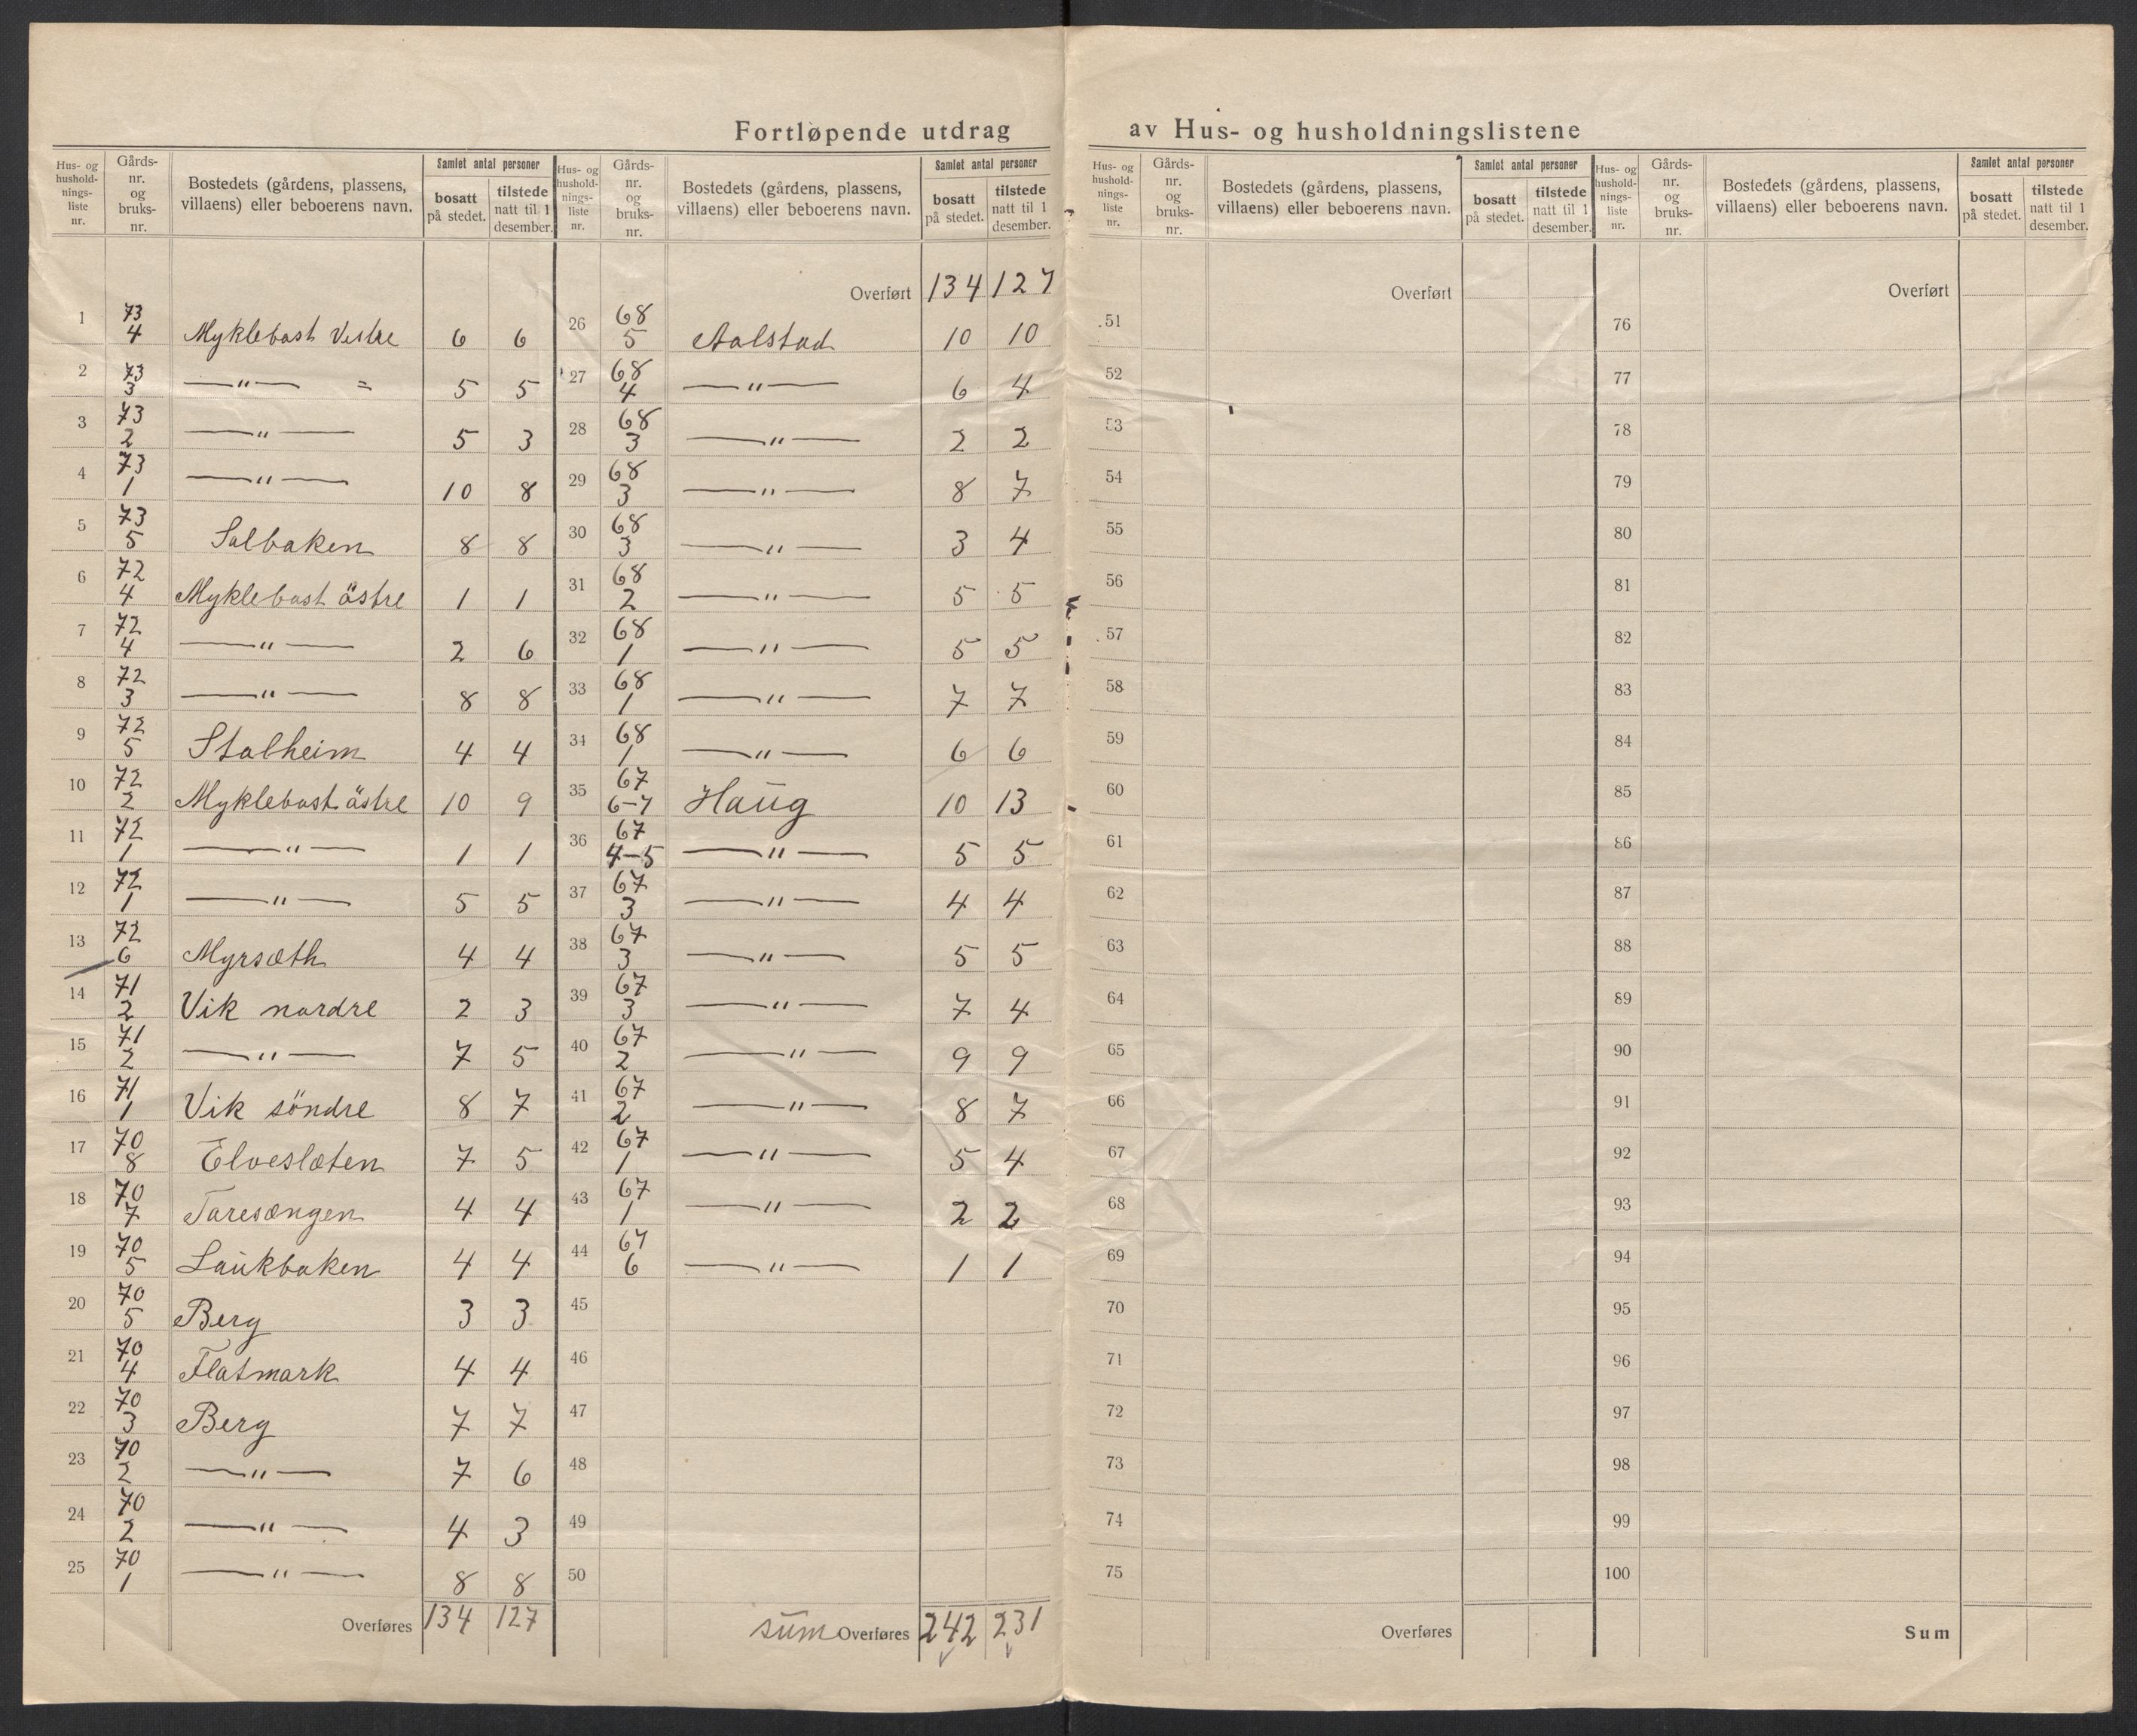 Fortløpende utdrag av Hus- og husholdningslistene
Hus- og husholdnings-liste nr. | Gårds-nr. og bruks-nr. | Bostedets (gårdens, plassens, villaens) eller beboerens navn. | Samlet antal personer | bosatt på stedet. | tilstede natt til 1 desember.
1 | 73 4 | Myklebost Vestre | 6 | 6
2 | 73 3 | —"— = | 5 | 5
3 | 73 2 | —"— | 5 | 3
4 | 73 1 | —"— | 10 | 8
5 | 73 5 | Solbaken | 8 | 8
6 | 72 4 | Myklebost östre | 1 | 1
7 | 72 4 | —"— | 2 | 6
8 | 72 3 | —"— | 8 | 8
9 | 72 5 | Stolheim | 4 | 4
10 | 72 2 | Myklebost östre | 10 | 9
11 | 72 1 | —"— | 1 | 1
12 | 72 1 | —"— | 5 | 5
13 | 72 6 | Myrsæth | 4 | 4
14 | 71 2 | Vik nordre | 2 | 3
15 | 71 2 | —"— | 7 | 5
16 | 71 1 | Vik söndre | 8 | 7
17 | 70 8 | Elvesletten | 7 | 5
18 | 70 7 | Taresængen | 4 | 4
19 | 70 5 | Laukbaken | 4 | 4
20 | 70 5 | Berg | 3 | 3
21 | 70 4 | Flatmark | 4 | 4
22 | 70 3 | Berg | 7 | 7
23 | 70 2 | —"— | 7 | 6
24 | 70 2 | —"— | 4 | 3
25 | 70 1 | —"— | 8 | 8
Overføres 134 | 127
Hus- og husholdnings-liste nr. | Gårds-nr. og bruks-nr. | Bostedets (gårdens, plassens, villaens) eller beboerens navn. | Samlet antal personer | bosatt på stedet. | tilstede natt til 1 desember.
Overført 134 | 127
26 | 68 5 | Aalstad | 10 | 10
27 | 68 4 | —"— | 6 | 4
28 | 68 3 | —"— | 2 | 2
29 | 68 3 | —"— | 8 | 7
30 | 68 3 | —"— | 3 | 4
31 | 68 2 | —"— | 5 | 5
32 | 68 1 | —"— | 5 | 5
33 | 68 1 | —"— | 7 | 7
34 | 68 1 | —"— | 6 | 6
35 | 67 6-7 | Haug | 10 | 13
36 | 67 4-5 | —"— | 5 | 5
37 | 67 3 | —"— | 4 | 4
38 | 67 3 | —"— | 5 | 5
39 | 67 3 | —"— | 7 | 4
40 | 67 2 | —"— | 9 | 9
41 | 67 2 | —"— | 8 | 7
42 | 67 1 | —"— | 5 | 4
43 | 67 1 | —"— | 2 | 2
44 | 67 6 | —"— | 1 | 1
45
46
47
48
49
50
sum Overføres 242 | 231
Hus- og husholdnings-liste nr. | Gårds-nr. og bruks-nr. | Bostedets (gårdens, plassens, villaens) eller beboerens navn. | Samlet antal personer | bosatt på stedet. | tilstede natt til 1 desember.
Overført
51
52
53
54
55
56
57
58
59
60
61
62
63
64
65
66
67
68
69
70
71
72
73
74
75
Overføres
Hus- og husholdnings-liste nr. | Gårds-nr. og bruks-nr. | Bostedets (gårdens, plassens, villaens) eller beboerens navn. | Samlet antal personer | bosatt på stedet. | tilstede natt til 1 desember.
Overført
76
77
78
79
80
81
82
83
84
85
86
87
88
89
90
91
92
93
94
95
96
97
98
99
100
Sum